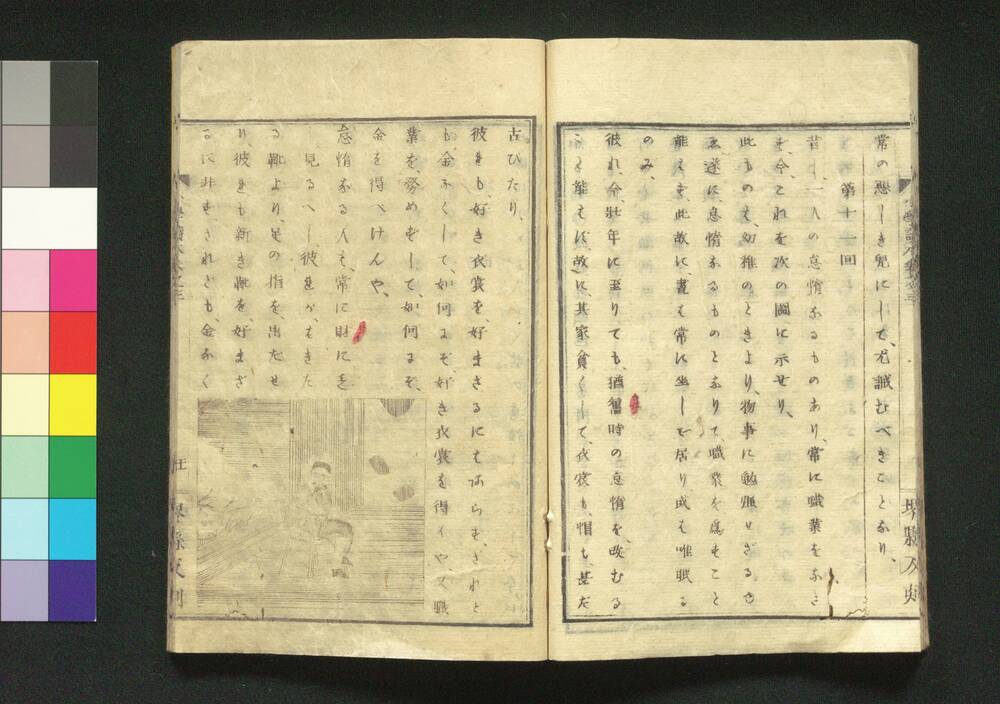 常の悪しき兒にして、尤誡むべきことなり、
第十一回
昔し、一人の怠惰なるものあり、常に職業をなさ
ず、今これを次の圖に示せり、
此ものは、幼稚のときより、物事に勉強せざるゆ
ゑ、遂に、怠惰なるものとなりて、職業を為すこと
能はず、此故に、晝も常に坐して居り或は唯眠る
のみ、
彼れ、今、壯年に至りても、猶舊時の怠惰を、改むる
こと能はず、故に、其家貧くして、衣裳も、帽も、甚だ
古びたり、
彼とも、好き衣裳を、好まざるにはあらず、されど
も、金なくして、如何にぞ、好き衣裳を得んや、又職
業を、務めずして、如何にぞ、
金を得べけんや、
怠惰なる人は、常に財に乏
見るべし、彼とが、はきた
る靴より、足の指を、出だせ
り、彼とも新き靴を、好まざ
るに非ず、されども、金なく
堺縣反刻